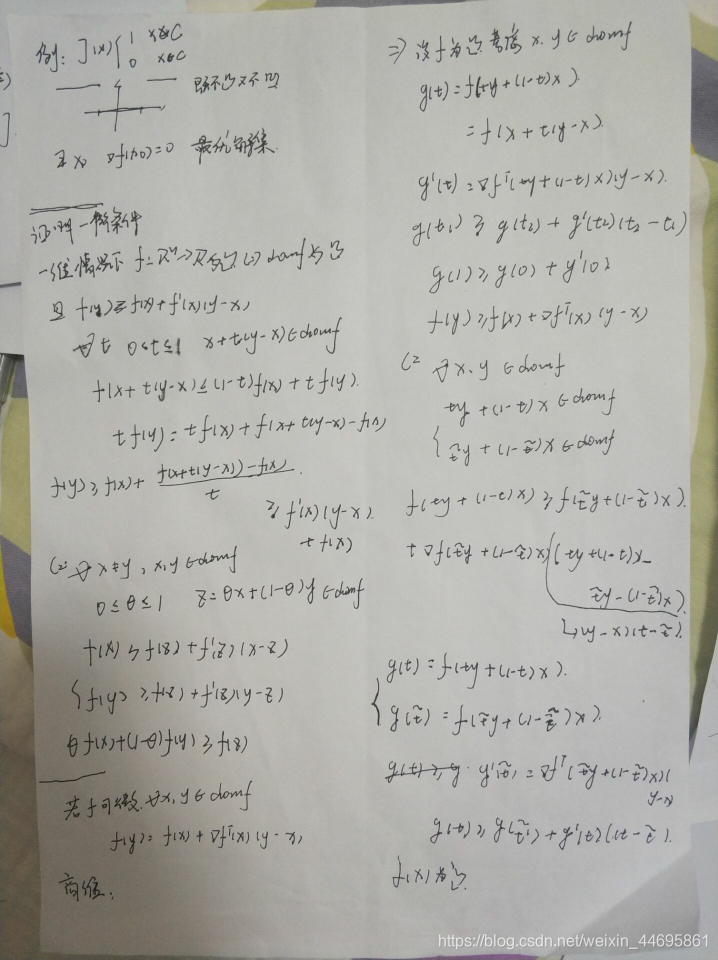 例: J(x) { 1 x∉C
0 x∈C
既不凸又不凹
∃ x₀ ∇f(x₀)=0 最优解集
证明一阶条件
一维情况下 f: R → R 为凸 (=) domf 为凸
且 f(y) ≥ f(x) + f'(x)(y-x)
∀ t 0<t≤1 x+t(y-x) ∈ domf
f(x+t(y-x)) ≤ (1-t)f(x) + t f(y)
t f(y) = t f(x) + f(x+t(y-x)) - f(x)
f(y) ≥ f(x) + f(x+t(y-x)) - f(x) / t
≥ f'(x)(y-x)
+ f(x)
(= ∀ x≠y, x,y ∈ domf
0≤θ≤1 z=θx+(1-θ)y ∈ domf
f(x) ≥ f(z) + f'(z)(x-z)
{ f(y) ≥ f(z) + f'(z)(y-z)
θf(x)+(1-θ)f(y) ≥ f(z)
若f可微 ∀x,y ∈ domf
f(y) ≥ f(x) + ∇fᵀ(x)(y-x)
高维:
=) 设f为凸 考虑 x,y ∈ domf
g(t) = f(ty+(1-t)x)
= f(x+t(y-x))
g'(t) = ∇fᵀ(ty+(1-t)x)(y-x)
g(t₁) ≥ g(t₂) + g'(t₂)(t₂-t₁)
g(1) ≥ g(0) + g'(0)
f(y) ≥ f(x) + ∇fᵀ(x)(y-x)
(= ∀ x,y ∈ domf
ty+(1-t)x ∈ domf
{ t̃y+(1-t̃)x ∈ domf
f(ty+(1-t)x) ≥ f(t̃y+(1-t̃)x)
+ ∇f(t̃y+(1-t̃)x)(ty+(1-t)x-
t̃y-(1-t̃)x)
↳ (y-x)(t-t̃)
g(t) = f(ty+(1-t)x)
{ g(t̃) = f(t̃y+(1-t̃)x)
g'(t̃) = ∇fᵀ(t̃y+(1-t̃)x)(
y-x)
g(t) ≥ g(t̃) + g'(t̃)(t-t̃)
f(x)为凸
https://blog.csdn.net/weixin_44695861